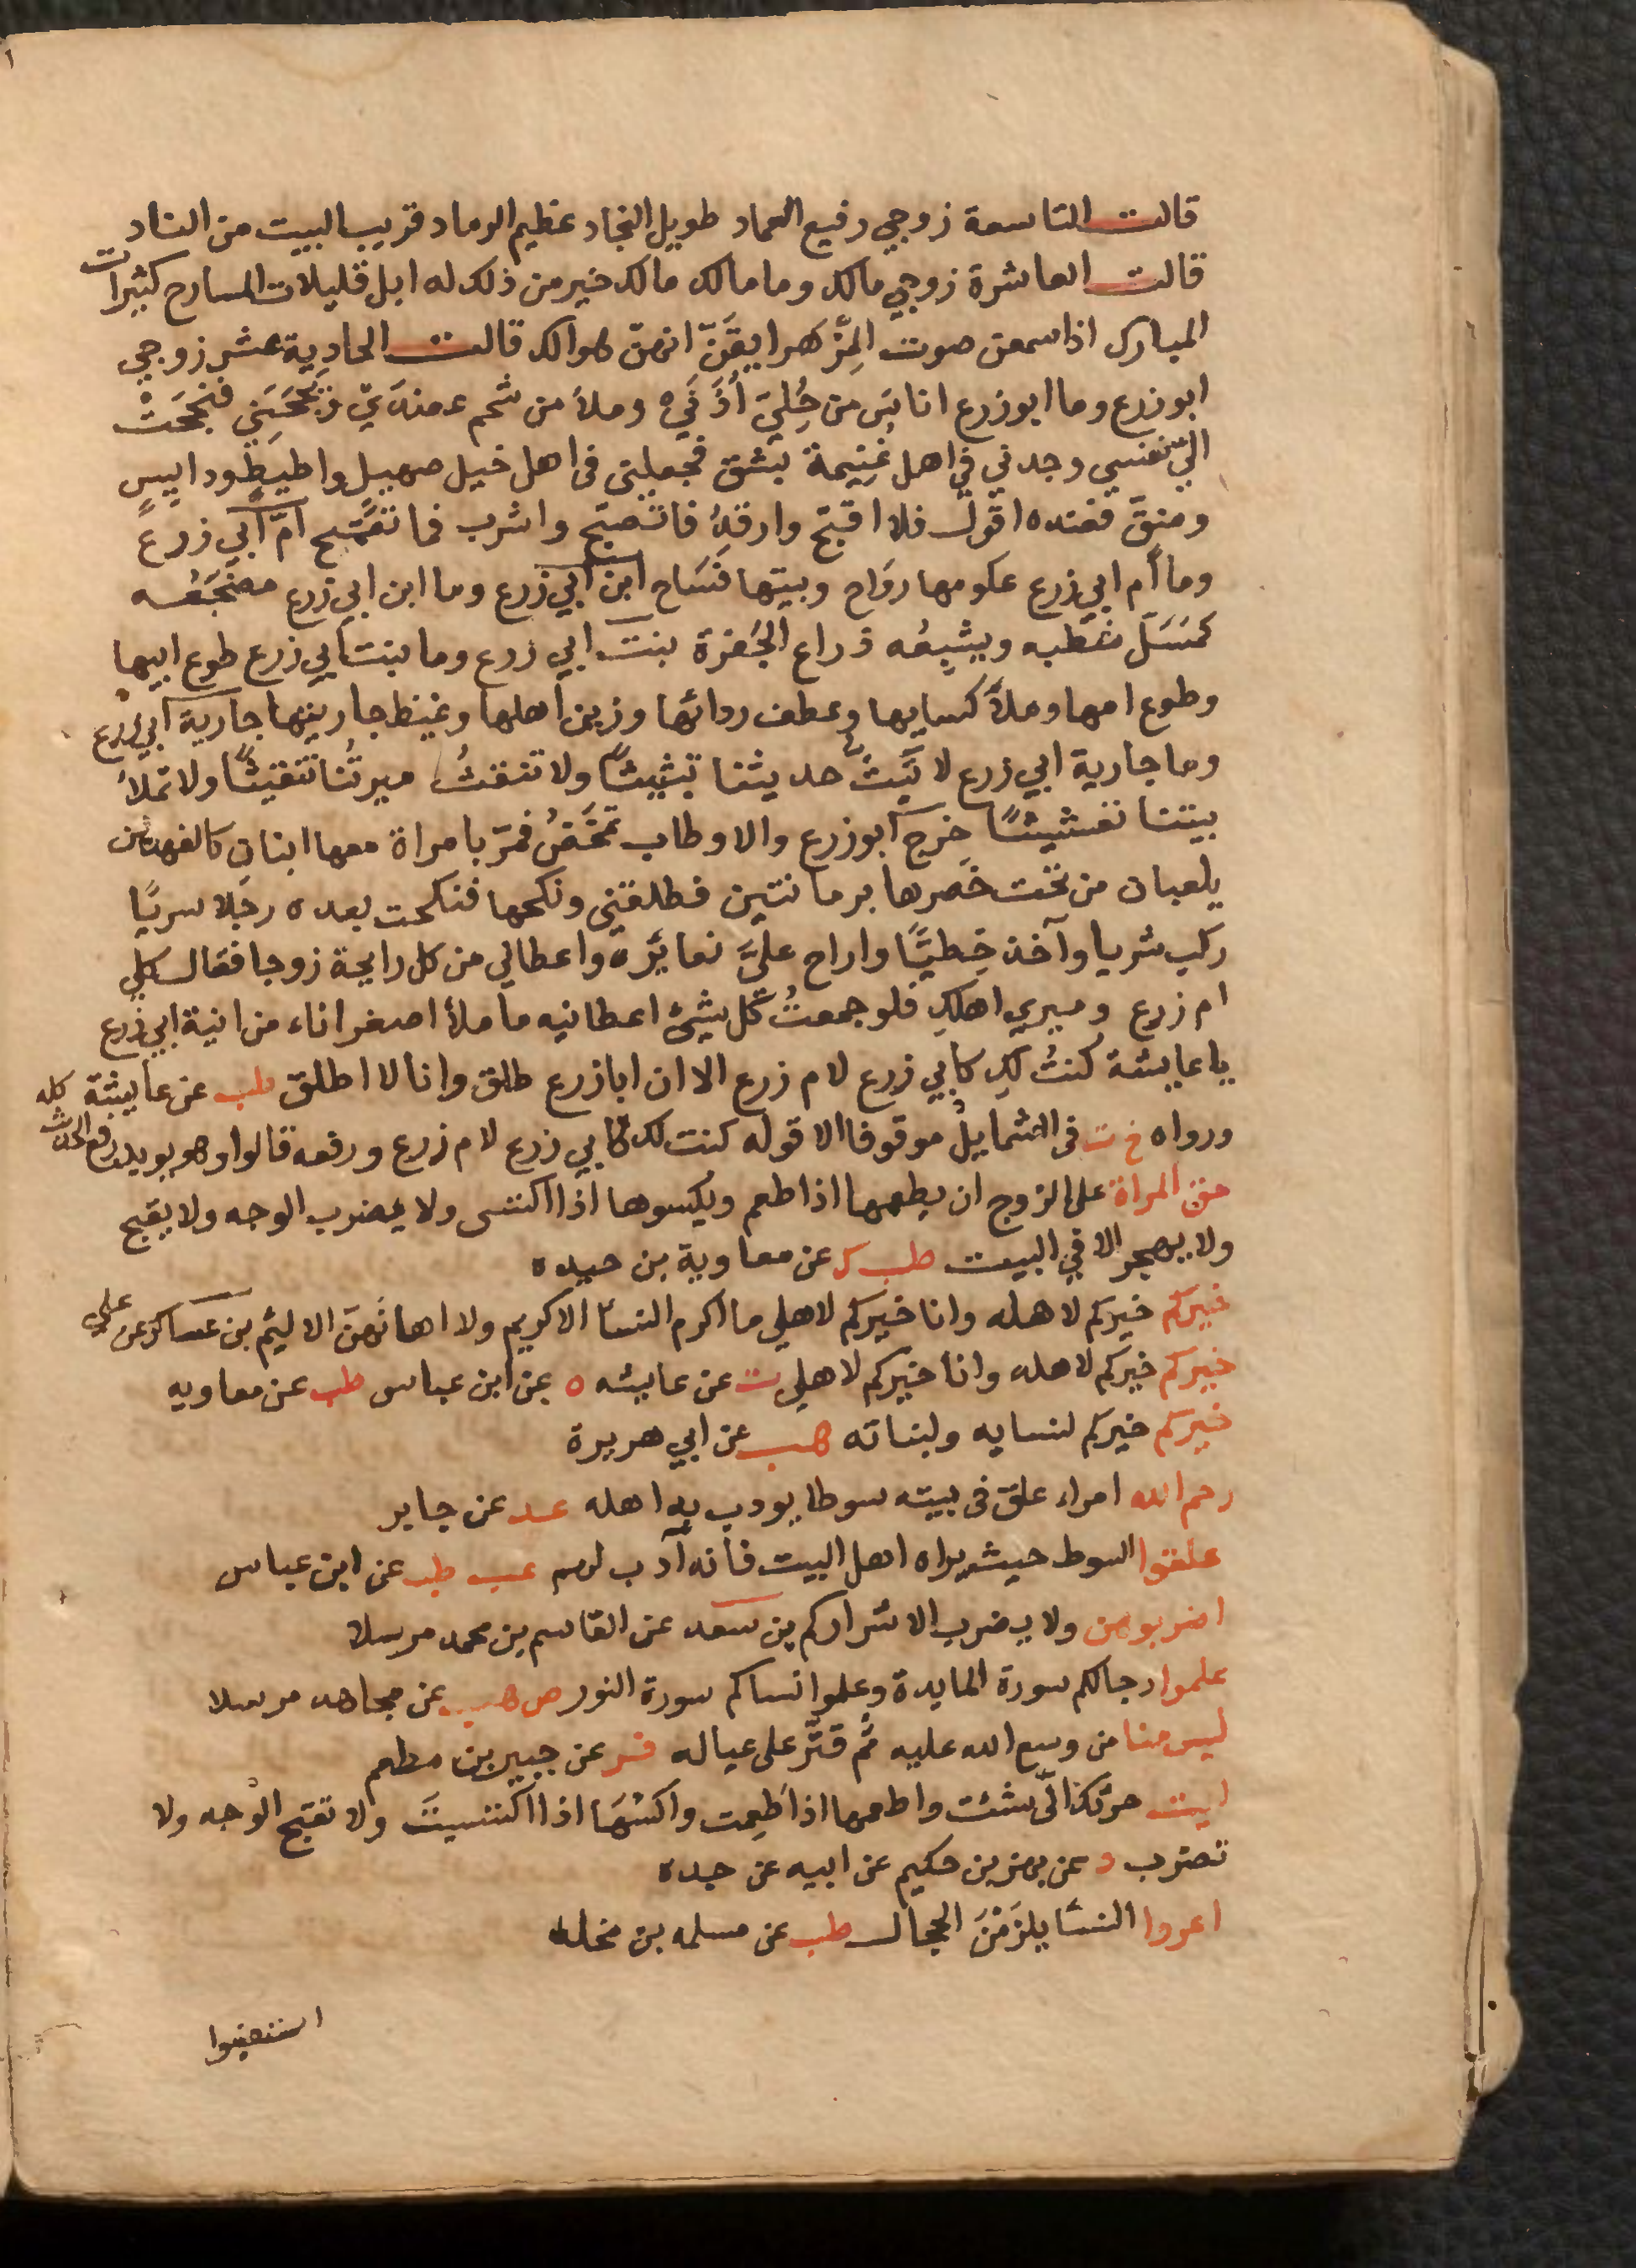 قالت التاسعة زوجي رفيع العماد طويل النجاد عظيم الرماد قريب البيت من الناد
قالت العاشرة زوجي مالك وما مالك مالك خير من ذلك له ابل قليلات المسارح كثيرات
المبارك اذا سمعن صوت المِزْهر ايقَنّ انهنّ هوالك قالت الحادِية عشر زوجي
ابو زرع وما ابو زرع اناسَ من حُلِيّ اُذَنَيّ وملأ من شحم عضدَيّ وبَجَّحَنِي فبَجَحَتْ
اليّ نفسي وجدني في اهل غُنِيمة بشق فجعلني في اهل خيل صهيل واطيط ودايسٍ
ومنقّ فعنده اقول فلا اقبّح وارقدُ فاتصبّح واشرب فما تقمّح امّ ابي زرع
وما أم ابي زرع عكومها رداح وبيتها فَسَاح ابن ابي زرع وما ابن ابي زرع مضجَعُه
كمَسَلّ شطبه ويشبِعُه ذراع الجَفرَة بنت ابي زرع وما بنت ابي زرع طوع ابيها
وطوع امها وملأ كسايها وعطف ردائها وزين اهلها وغيظ جارتها جارية ابي زرع
وما جارية ابي زرع لا تبُثُّ حديثنا تبثيثًا ولا تنقثُ ميرتُنا تنقيثًا ولا تملأ
بيتنا تغشيشًا خرج ابو زرع والاوطاب تمخَضُ فمرّ بامراة معها ابنانِ كالفهدين
يلعبان من تحت خَصرها برمانتين فطلقني ونكحها فنكحت بعده رجلا سريًا
ركب شريا وآخذ خِطيًّا واراح عليَّ نعما ثَرّه واعطاني من كل رايحة زوجا فقال كلي
ام زرع وميري اهلكِ فلو جمعتُ كل شيئ اعطانيه ما ملأ اصغر اناء من انية ابي زرع
يا عايشة كنتُ لكِ كابي زرع لام زرع الا ان ابا زرع طلق وانا لا اطلق طب عن عايشة كله
ورواه خ ت فى الشمايل موقوفا الا قوله كنت لك كابي زرع لام زرع ورفعه قالوا وهو يويد رفع الحديث
حق المراة على الزوج ان يطعمها اذا طعم ويكسوها اذا اكتسى ولا يضرب الوجه ولا يقبح
ولا يهجر الا في البيت طب ك عن معاوية بن حيده
خيركم خيركم لاهله وانا خيركم لاهلي ما اكرم النسآ الا كريم ولا اهانَهنّ الا ليئم بن عساكر عن علي
خيركم خيركم لاهله وانا خيركم لاهلي ت عن عايشه ه عن ابن عباس طب عن معاويه
خيركم خيركم لنسايه ولبناته هب عن ابي هريرة
رحم الله امراء علق فى بيته سوطا يودب به اهله عد عن جابر
علقوا السوط حيث يراه اهل البيت فانه آدب لهم عب طب عن ابن عباس
اضربوهن ولا يضرب الا شراركم بن سعد عن القاسم بن محمد مرسلا
علموا رجالكم سورة المايدة وعلموا نساكم سورة النور ص هب عن مجاهد مرسلا
ليس منا من وسع الله عليه ثم قتّر على عياله فر عن جبير بن مطعم
ايت حرثك انّى شئت واطعمها اذا طَعِمت واكسُهَا اذا اكتسيتَ ولا تقبّح الوَجه ولا
تضرب د عن بهز بن حكيم عن ابيه عن جده
اعروا النسآ يلزَمْنَ الحجال طب عن مسلمه بن مخلد
استعينوا